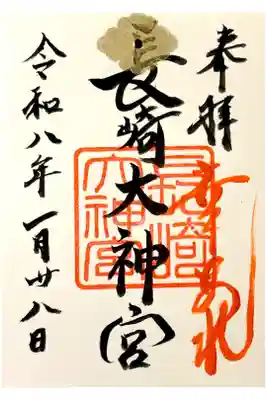 奉拝
長崎大神宮
長崎
大神宮
令和八年一月廿八日